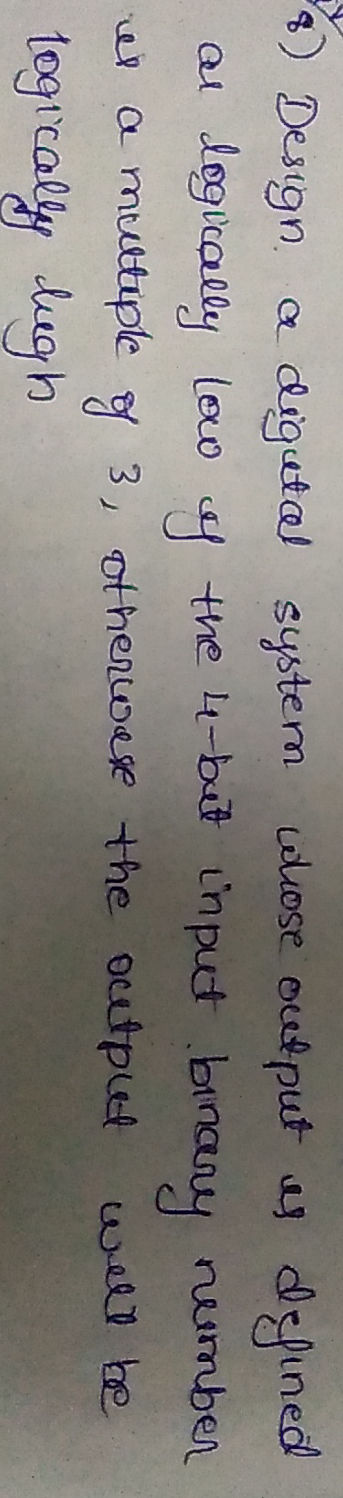 8) Design a digital system whose output is defined
as logically low if the 4-bit input binary number
is a multiple of 3, otherwise the output will be
logically high